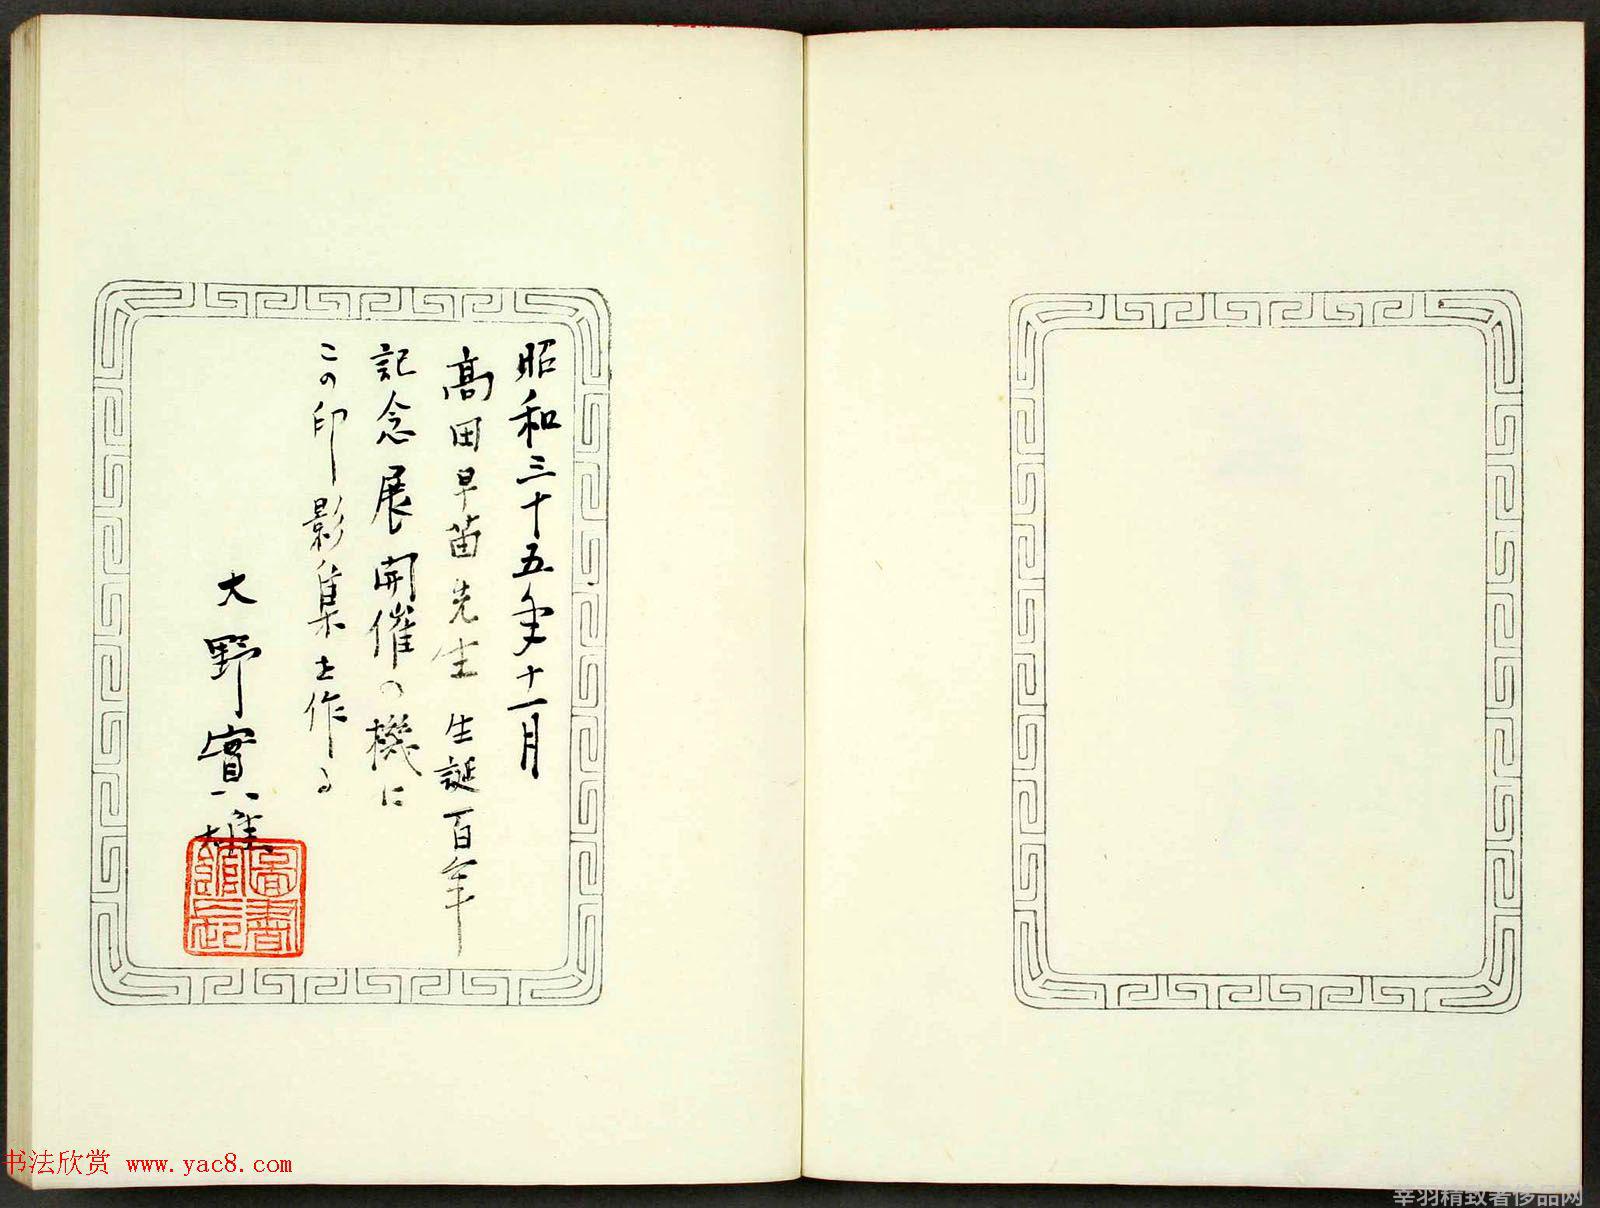 昭和三十五年十一月
高田早苗先生 生誕百年
記念展開催の機に
この印影集を作る
大野實雄
圖書
館長
书法欣赏 www.yac8.com
莘羽精致奢侈品网